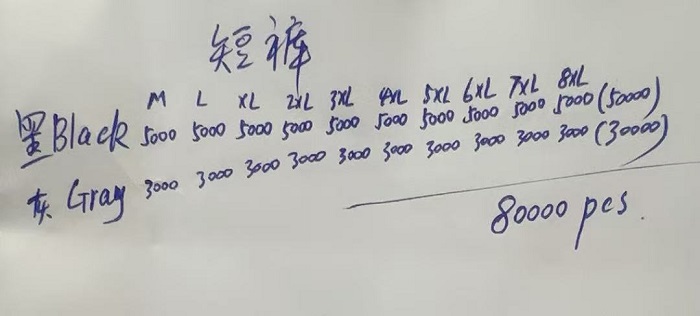 短裤
M L XL 2XL 3XL 4XL 5XL 6XL 7XL 8XL
黑Black 5000 5000 5000 5000 5000 5000 5000 5000 5000 5000 (50000)
灰 Gray 3000 3000 3000 3000 3000 3000 3000 3000 3000 3000 (30000)
80000 pcs.